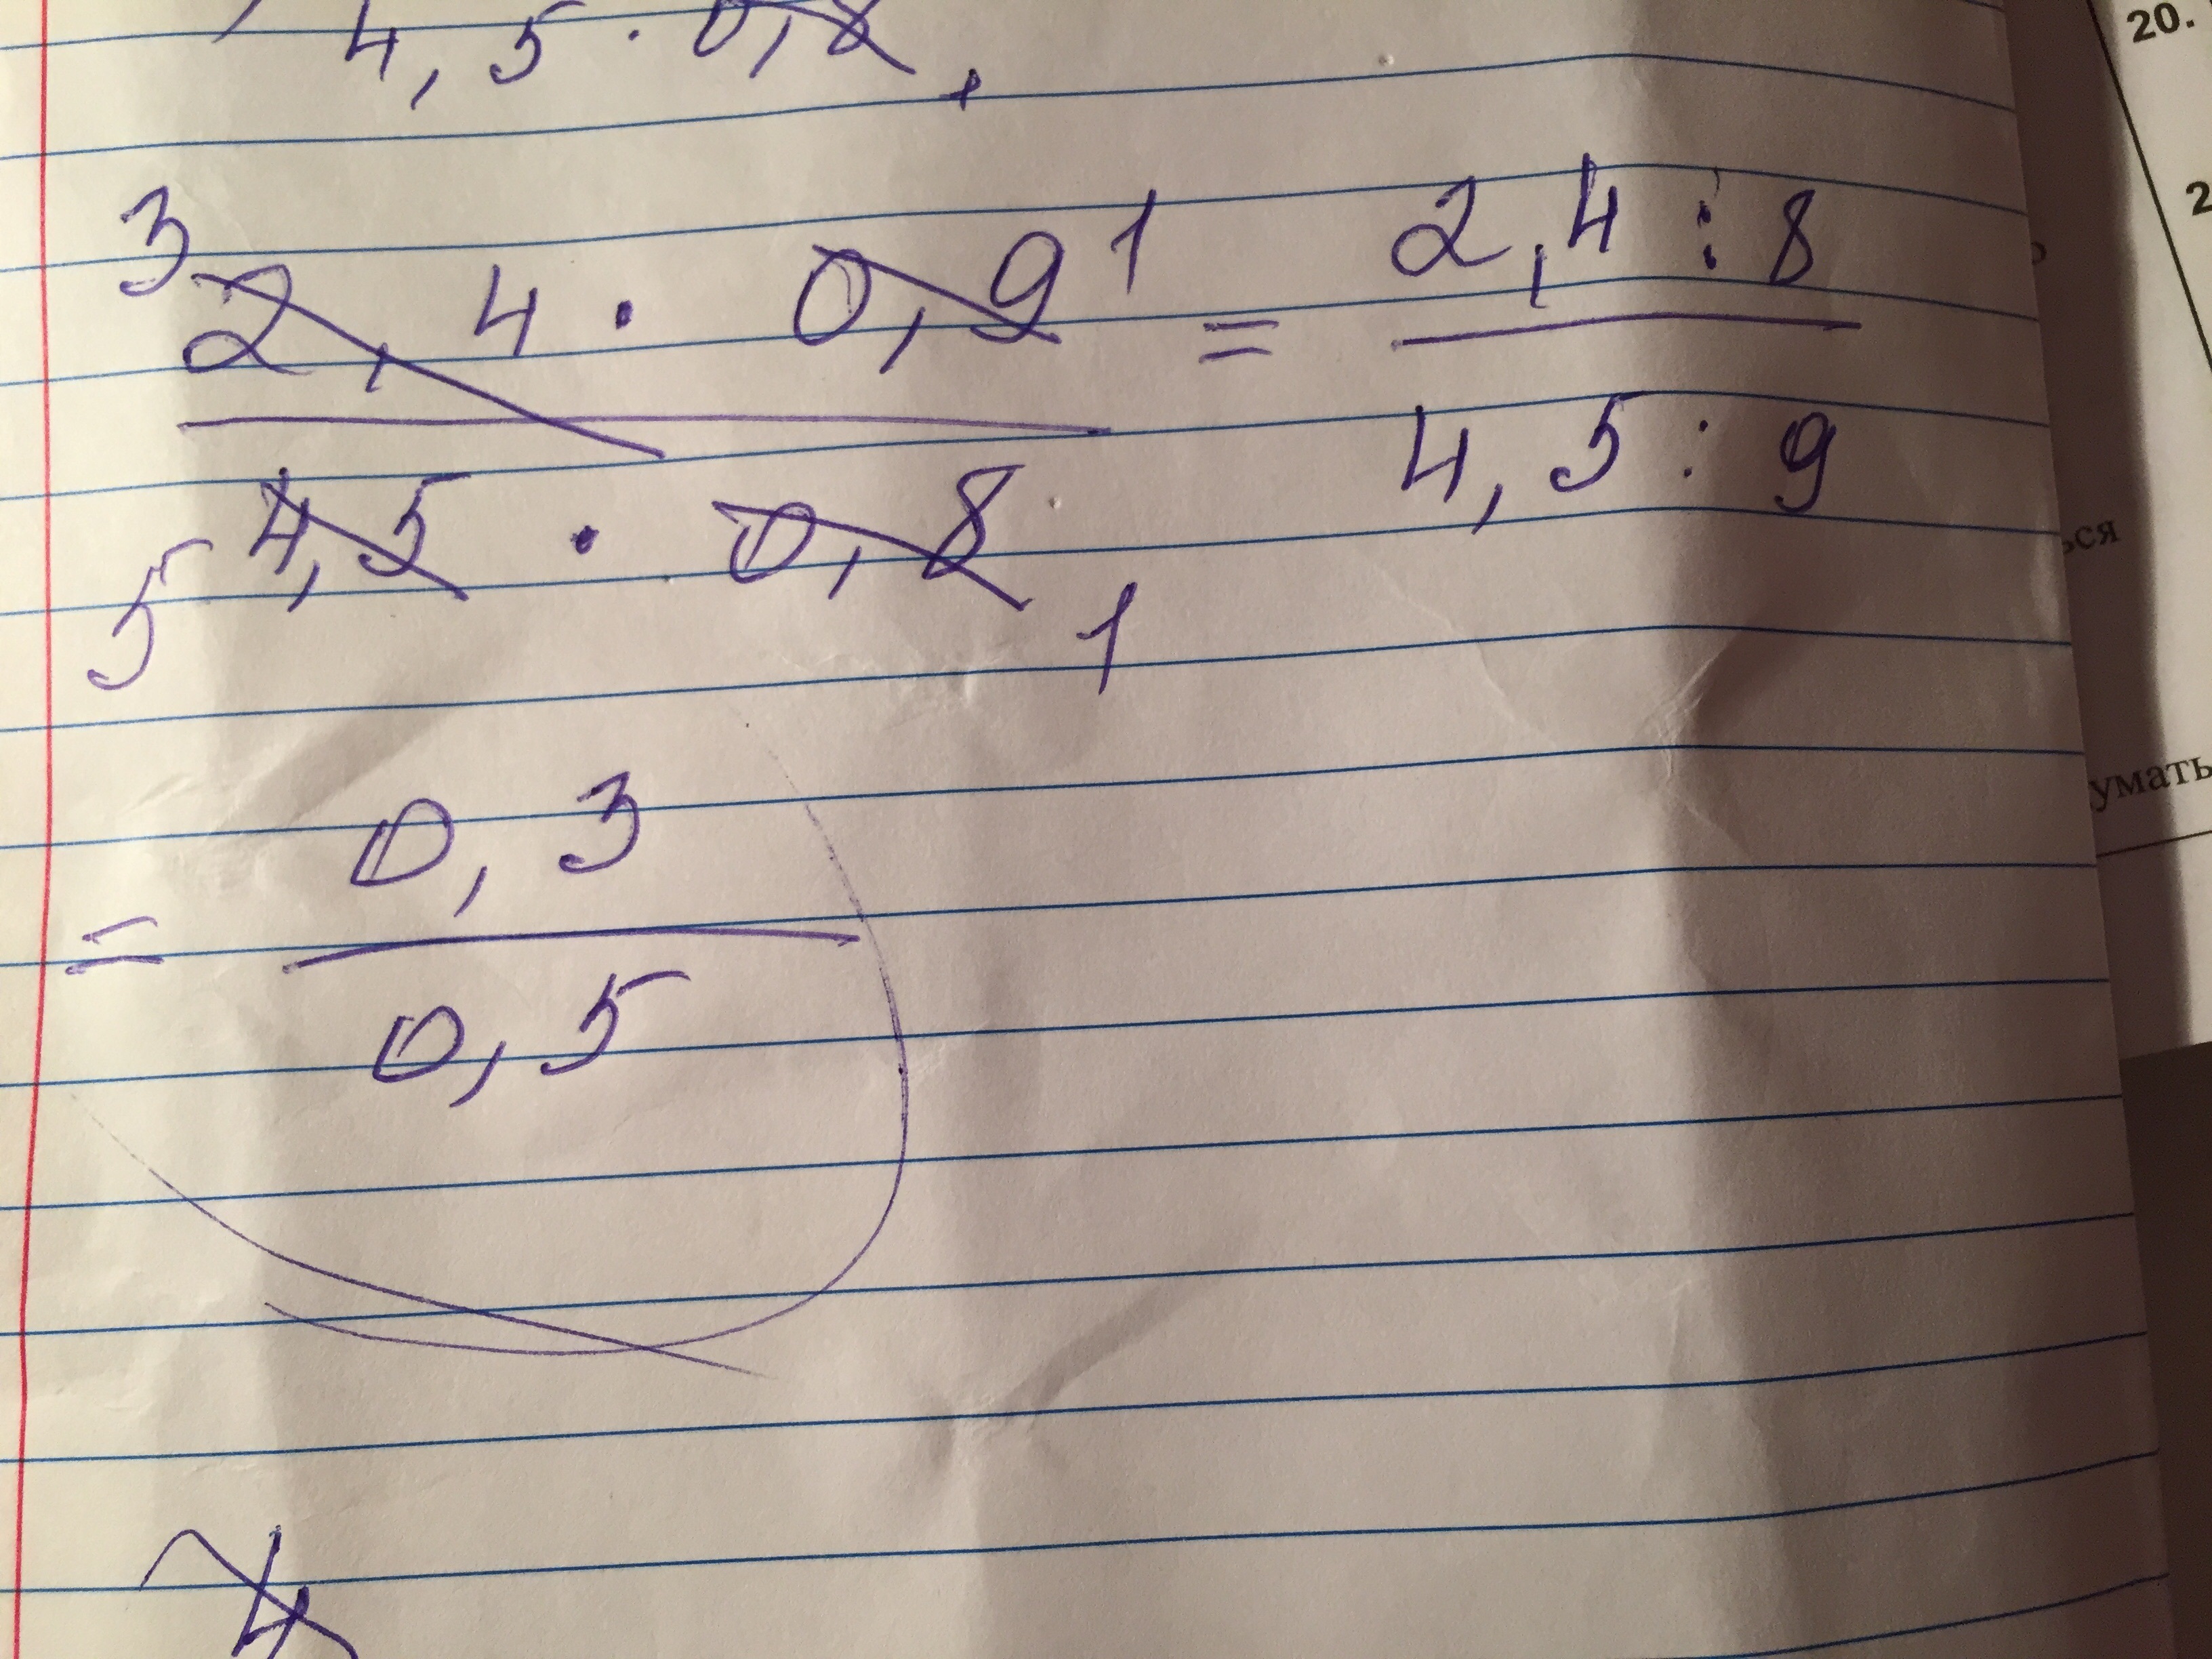 4,5 · 0,8
20.
3 2,4 · 0,9 1 = 2,4 : 8
5 4,5 · 0,8 1 4,5 : 9
2
ься
умать
= 0,3
0,5
4